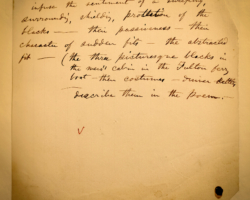 infuse the sentiment of a sweeping,
surrounding, shielding, protection of the
blacks — their passiveness — their
character of sudden fits — the abstracted
fit — (the three picturesque blacks in
the men's cabin in the Fulton ferry
boat — their costumes — dinner-kettles
describe them in the poem.